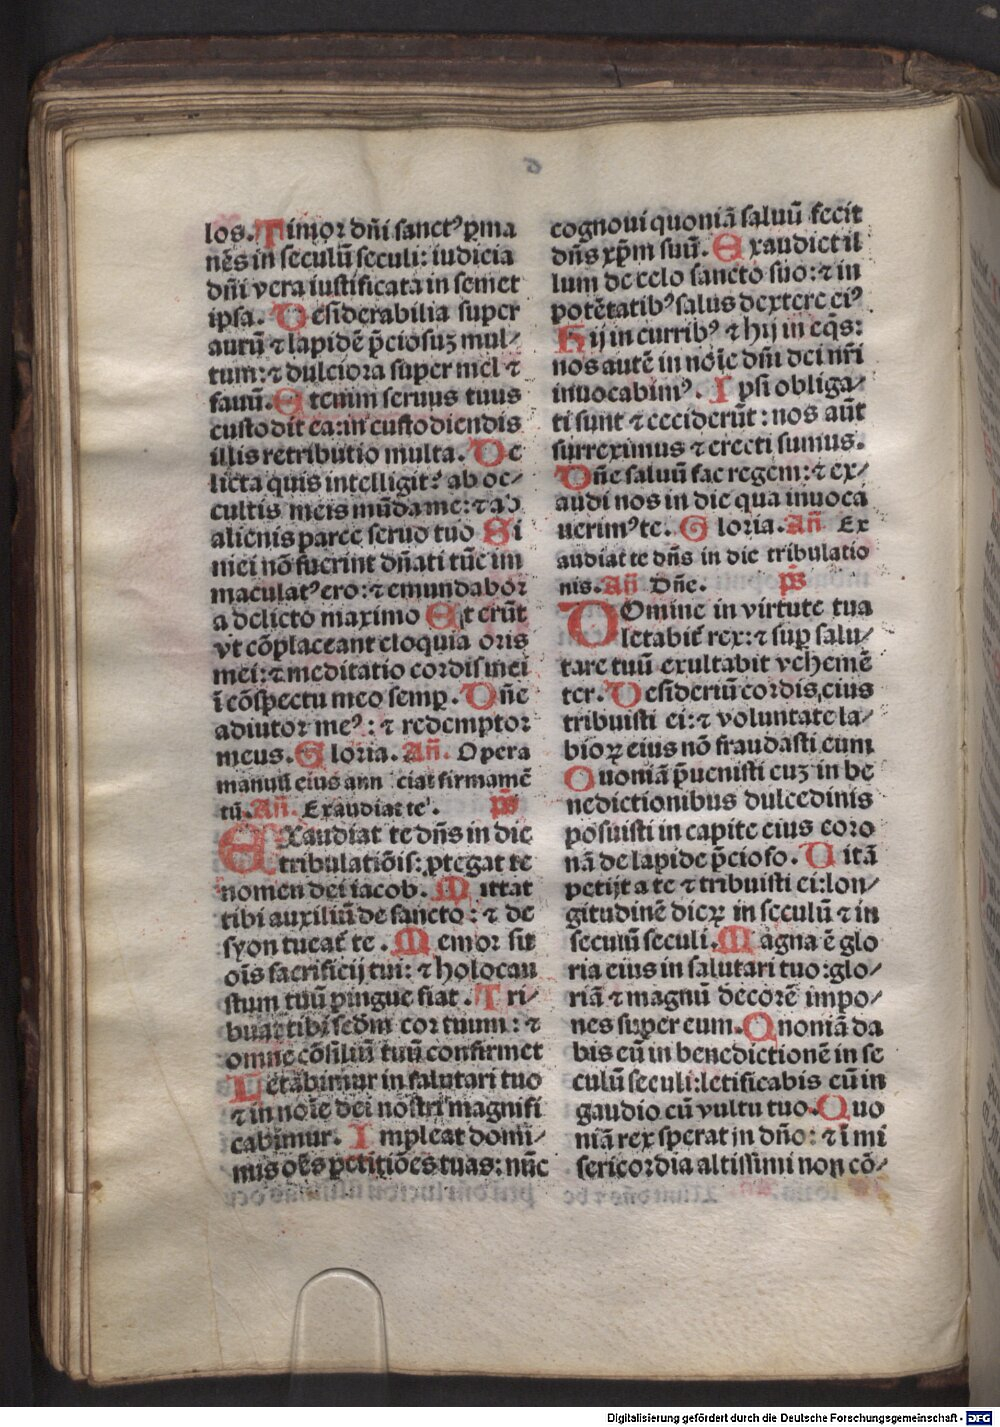 los. Timor dñi sanctꝰ ꝑma
nēs in seculū seculi: iudicia
dñi vera iustificata in semet
ipsa. Desiderabilia super
aurū ⁊ lapidē p̄ciosuʒ mul⸗
tum: ⁊ dulciora super mel ⁊
fauū. Etenim seruus tuus
custodit ea: in custodiendis
illis retributio multa. De
licta quis intelligit? ab oc⸗
cultis meis mūda me: ⁊ ab
alienis parce seruo tuo Si
mei nō fuerint dñati tūc im
maculatꝰ ero: ⁊ emundabor
a delicto maximo Et erūt
vt cōplaceant eloquia oris
mei: ⁊ meditatio cordis mei
ī cōspectu meo semꝑ. Dñe
adiutor meꝰ: ⁊ redemptor
meus. Gloria. Añ. Opera
manuū eius ann ciat firmamē
tū. Añ. Exaudiat te. ps̄
EXaudiat te dñs in die
tribulatiōis: ꝓtegat te
nomen dei iacob. Mittat
tibi auxiliū de sancto: ⁊ de
syon tueat̄ te. Memor sit
ois̄ sacrificij tui: ⁊ holocau
stum tuū pingue fiat. Tri⸗
buat tibi sedm̄ cor tuum: ⁊
omne cōsiliū tuū confirmet
Letabimur in salutari tuo
⁊ in noīe dei nostri magnifi
cabimur. Impleat domi⸗
nus oēs petitiōes tuas: nūc
cognoui quoniā saluū fecit
dñs xp̄m suū. Exaudiet il
lum de celo sancto suo: ⁊ in
potētatibꝰ salus dextere eiꝰ
Hij in curribꝰ ⁊ hij in eq̄s:
nos autē in noīe dñi dei nr̄i
inuocabimꝰ. Ipsi obliga⸗
ti sunt ⁊ ceciderūt: nos aūt
surreximus ⁊ erecti sumus.
Dñe saluū fac regem: ⁊ ex⸗
audi nos in die qua inuoca
uerimꝰ te. Gloria. Añ Ex
audiat te dñs in die tribulatio
nis. Añ Dñe. ps̄
DOmine in virtute tua
letabit̄ rex: ⁊ suꝑ salu⸗
tare tuū exultabit vehemē
ter. Desideriū cordis eius
tribuisti ei: ⁊ voluntate la⸗
bioꝝ eius nō fraudasti eum
Quoniā p̄uenisti euʒ in be
nedictionibus dulcedinis
posuisti in capite eius coro
nā de lapide p̄cioso. Uitā
petijt a te ⁊ tribuisti ei: lon⸗
gitudinē dieꝝ in seculū ⁊ in
seculū seculi. Magna ē glo
ria eius in salutari tuo: glo⸗
riā ⁊ magnū decorē impo⸗
nes super eum. Qnoniā da
bis eū in benedictionē in se
culū seculi: letificabis eū in
gaudio cū vultu tuo. Quo
niā rex sperat in dño: ⁊ ī mi
sericordia altissimi non cō⸗
Digitalisierung gefördert durch die Deutsche Forschungsgemeinschaft - DFG